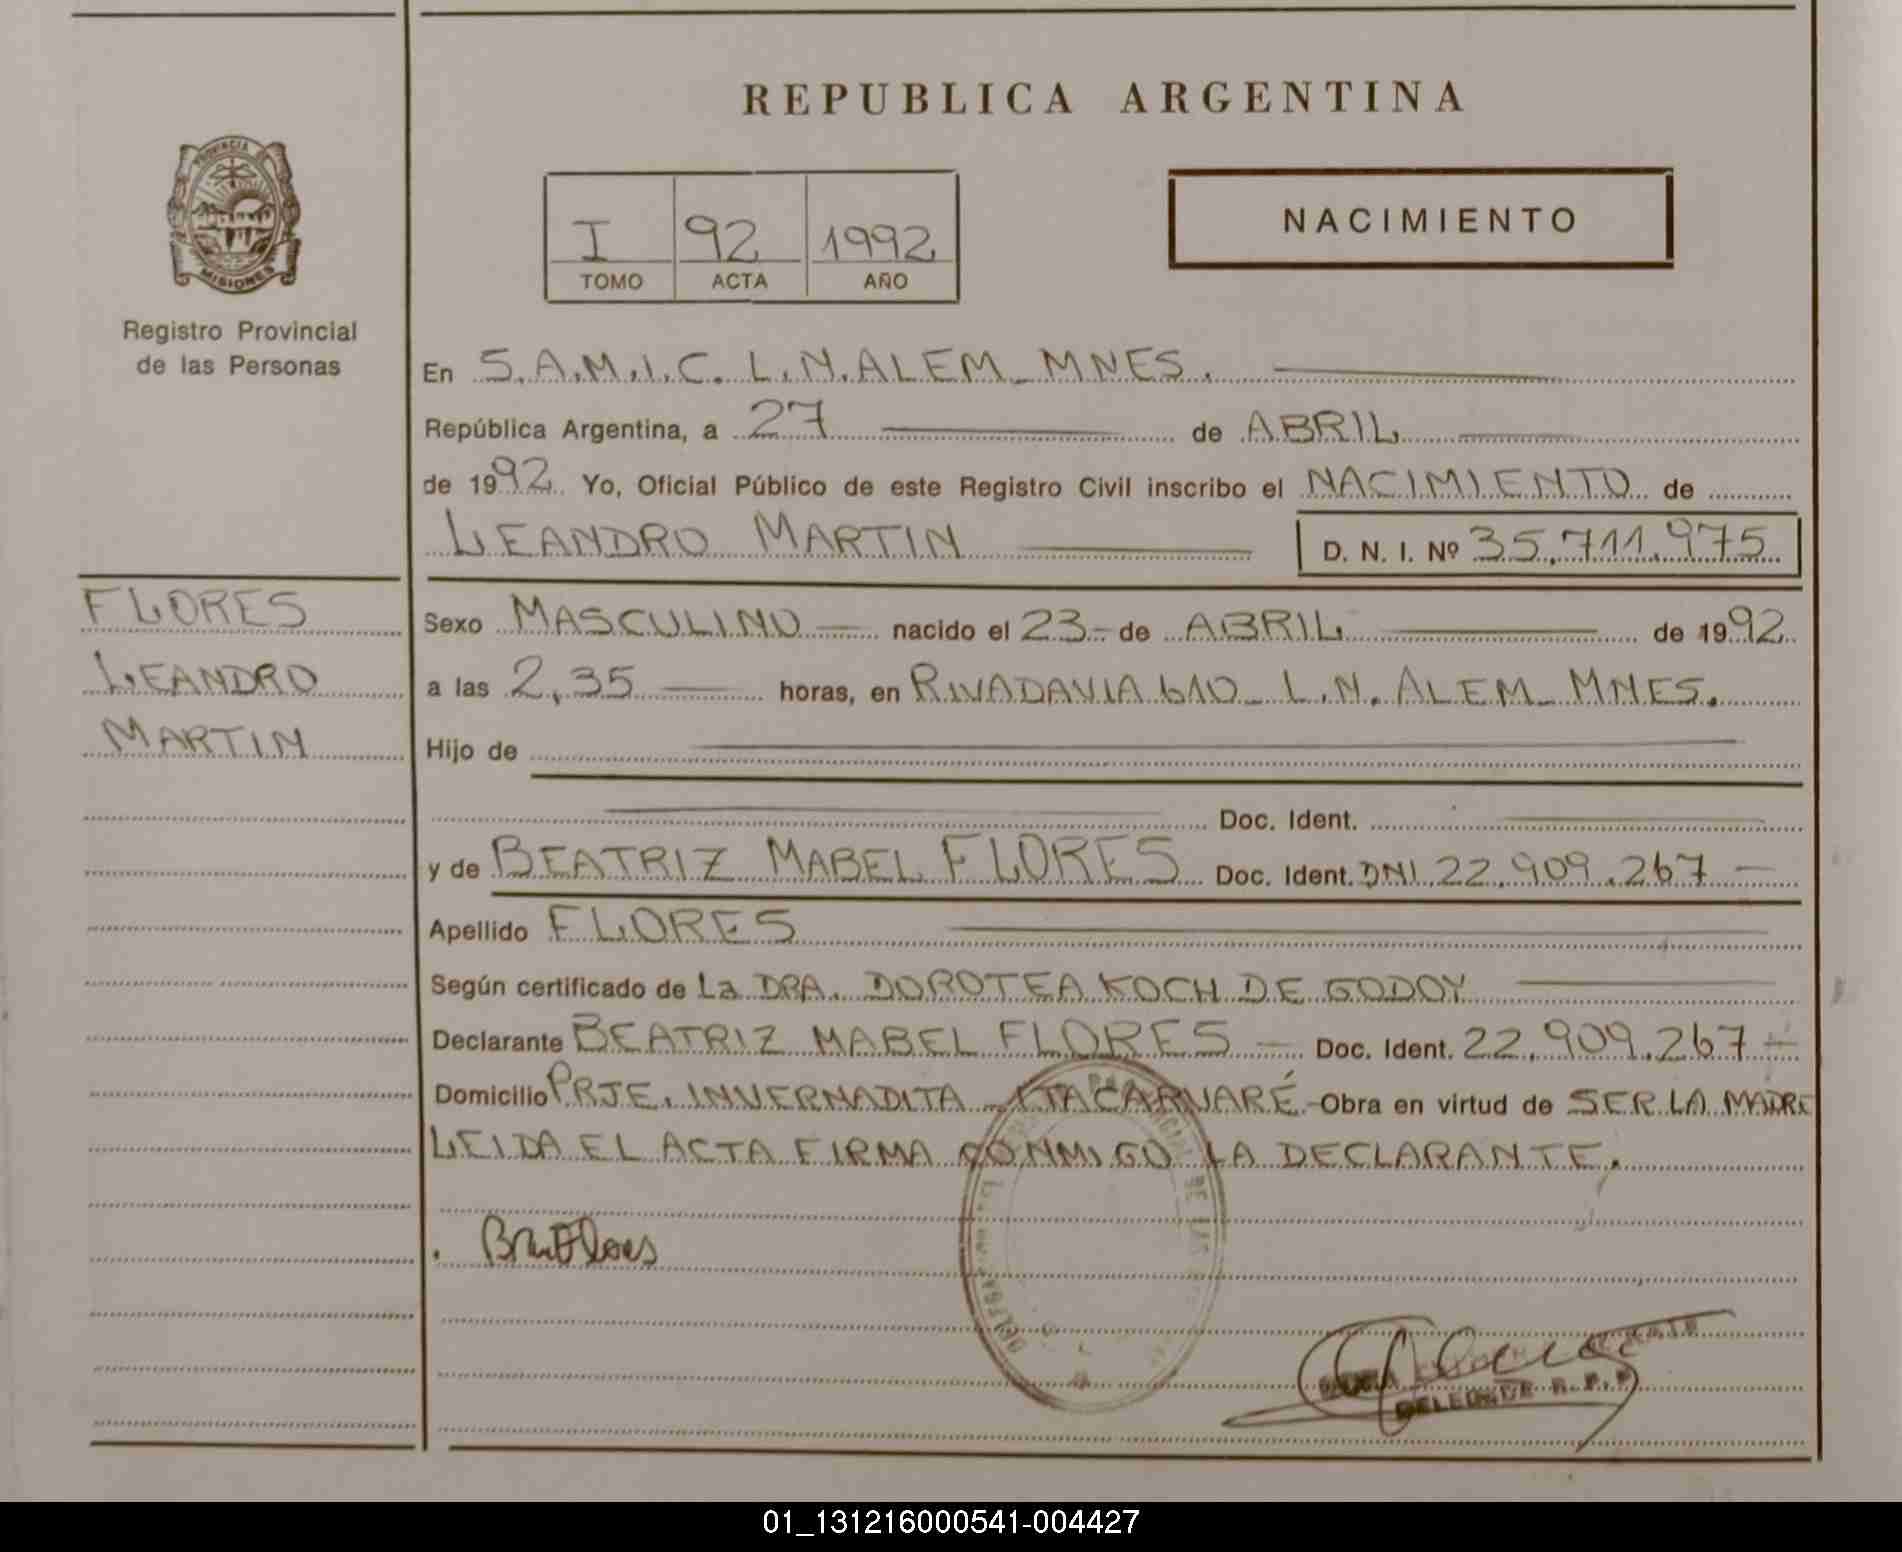 REPUBLICA ARGENTINA
PROVINCIA DE
MISIONES
Registro Provincial
de las Personas
I 92 1992
TOMO ACTA AÑO
NACIMIENTO
En S.A.M.I.C. L.N.ALEM_MNES.
República Argentina, a 27 de ABRIL
de 1992 Yo, Oficial Público de este Registro Civil inscribo el NACIMIENTO de
LEANDRO MARTIN D. N. I. Nº 35.711.975
FLORES
LEANDRO
MARTIN
Sexo MASCULINO nacido el 23 de ABRIL de 1992
a las 2,35 horas, en RIVADAVIA 610_ L.N. ALEM_MNES.
Hijo de
Doc. Ident.
y de BEATRIZ MABEL FLORES Doc. Ident. DNI 22.909.267
Apellido FLORES
Según certificado de La DRA. DOROTEA KOCH DE GODOY
Declarante BEATRIZ MABEL FLORES Doc. Ident. 22.909.267
Domicilio PRJE. INVERNADITA - ITACARUARÉ - Obra en virtud de SER LA MADRE
LEIDA EL ACTA FIRMA CONMIGO LA DECLARANTE.
DE LAS
01_131216000541-004427